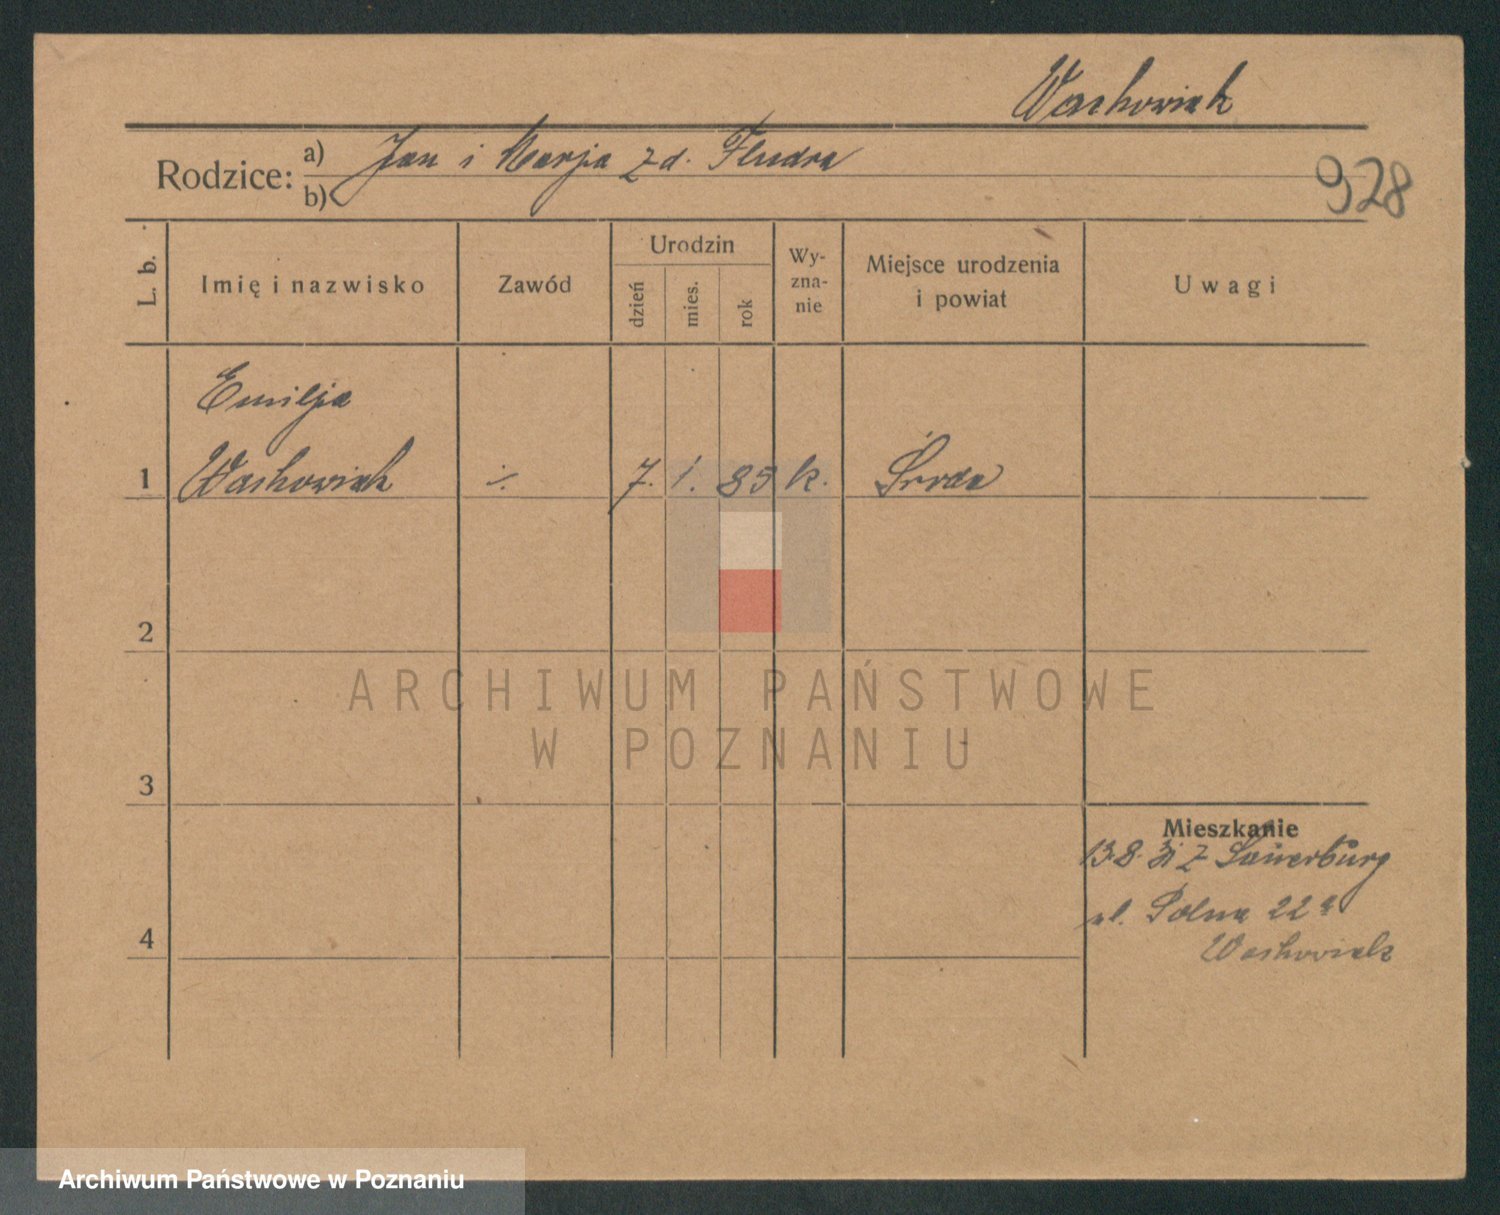 Wachowiak
Rodzice: a) Jan i Marja z d. Fludra
b)
928
L. b.
Imię i nazwisko
Zawód
Urodzin
dzień
mies.
rok
Wy-
zna-
nie
Miejsce urodzenia
i powiat
Uwagi
Emilja
1 Wachowiak ./. 7. 1. 85 k. Środa
2
3
4
Mieszkanie
13.8. 31 z
ul. Polna 22a
Wachowiak
ARCHIWUM PAŃSTWOWE
W POZNANIU
Archiwum Państwowe w Poznaniu